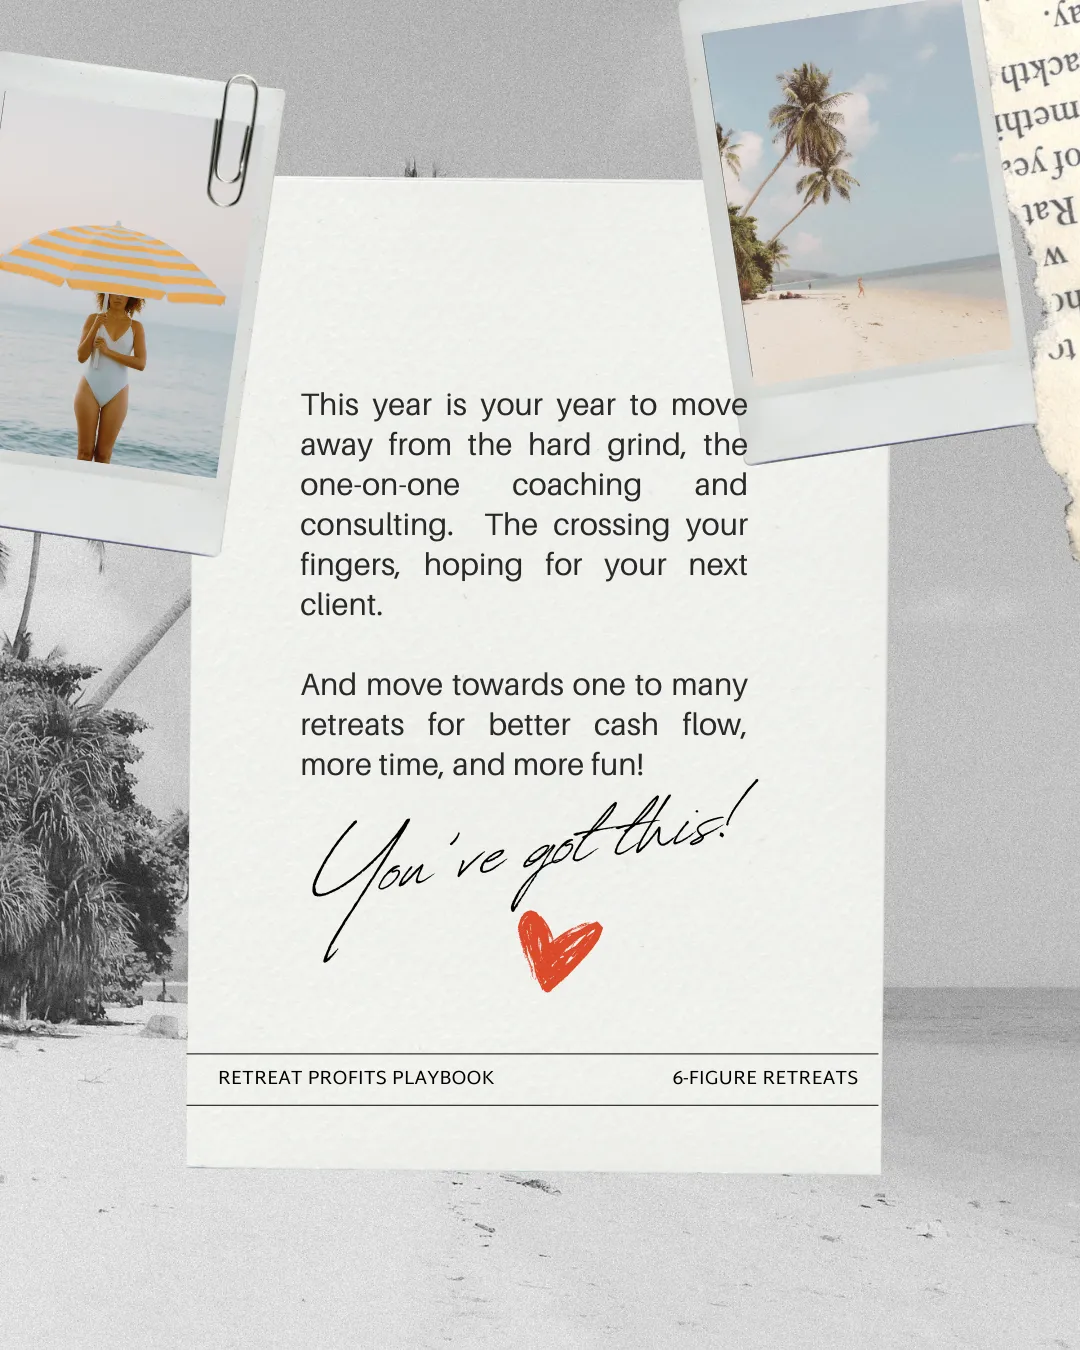 This year is your year to move
away from the hard grind, the
one-on-one coaching and
consulting. The crossing your
fingers, hoping for your next
client.
And move towards one to many
retreats for better cash flow,
more time, and more fun!
You've got this!
RETREAT PROFITS PLAYBOOK
6-FIGURE RETREATS